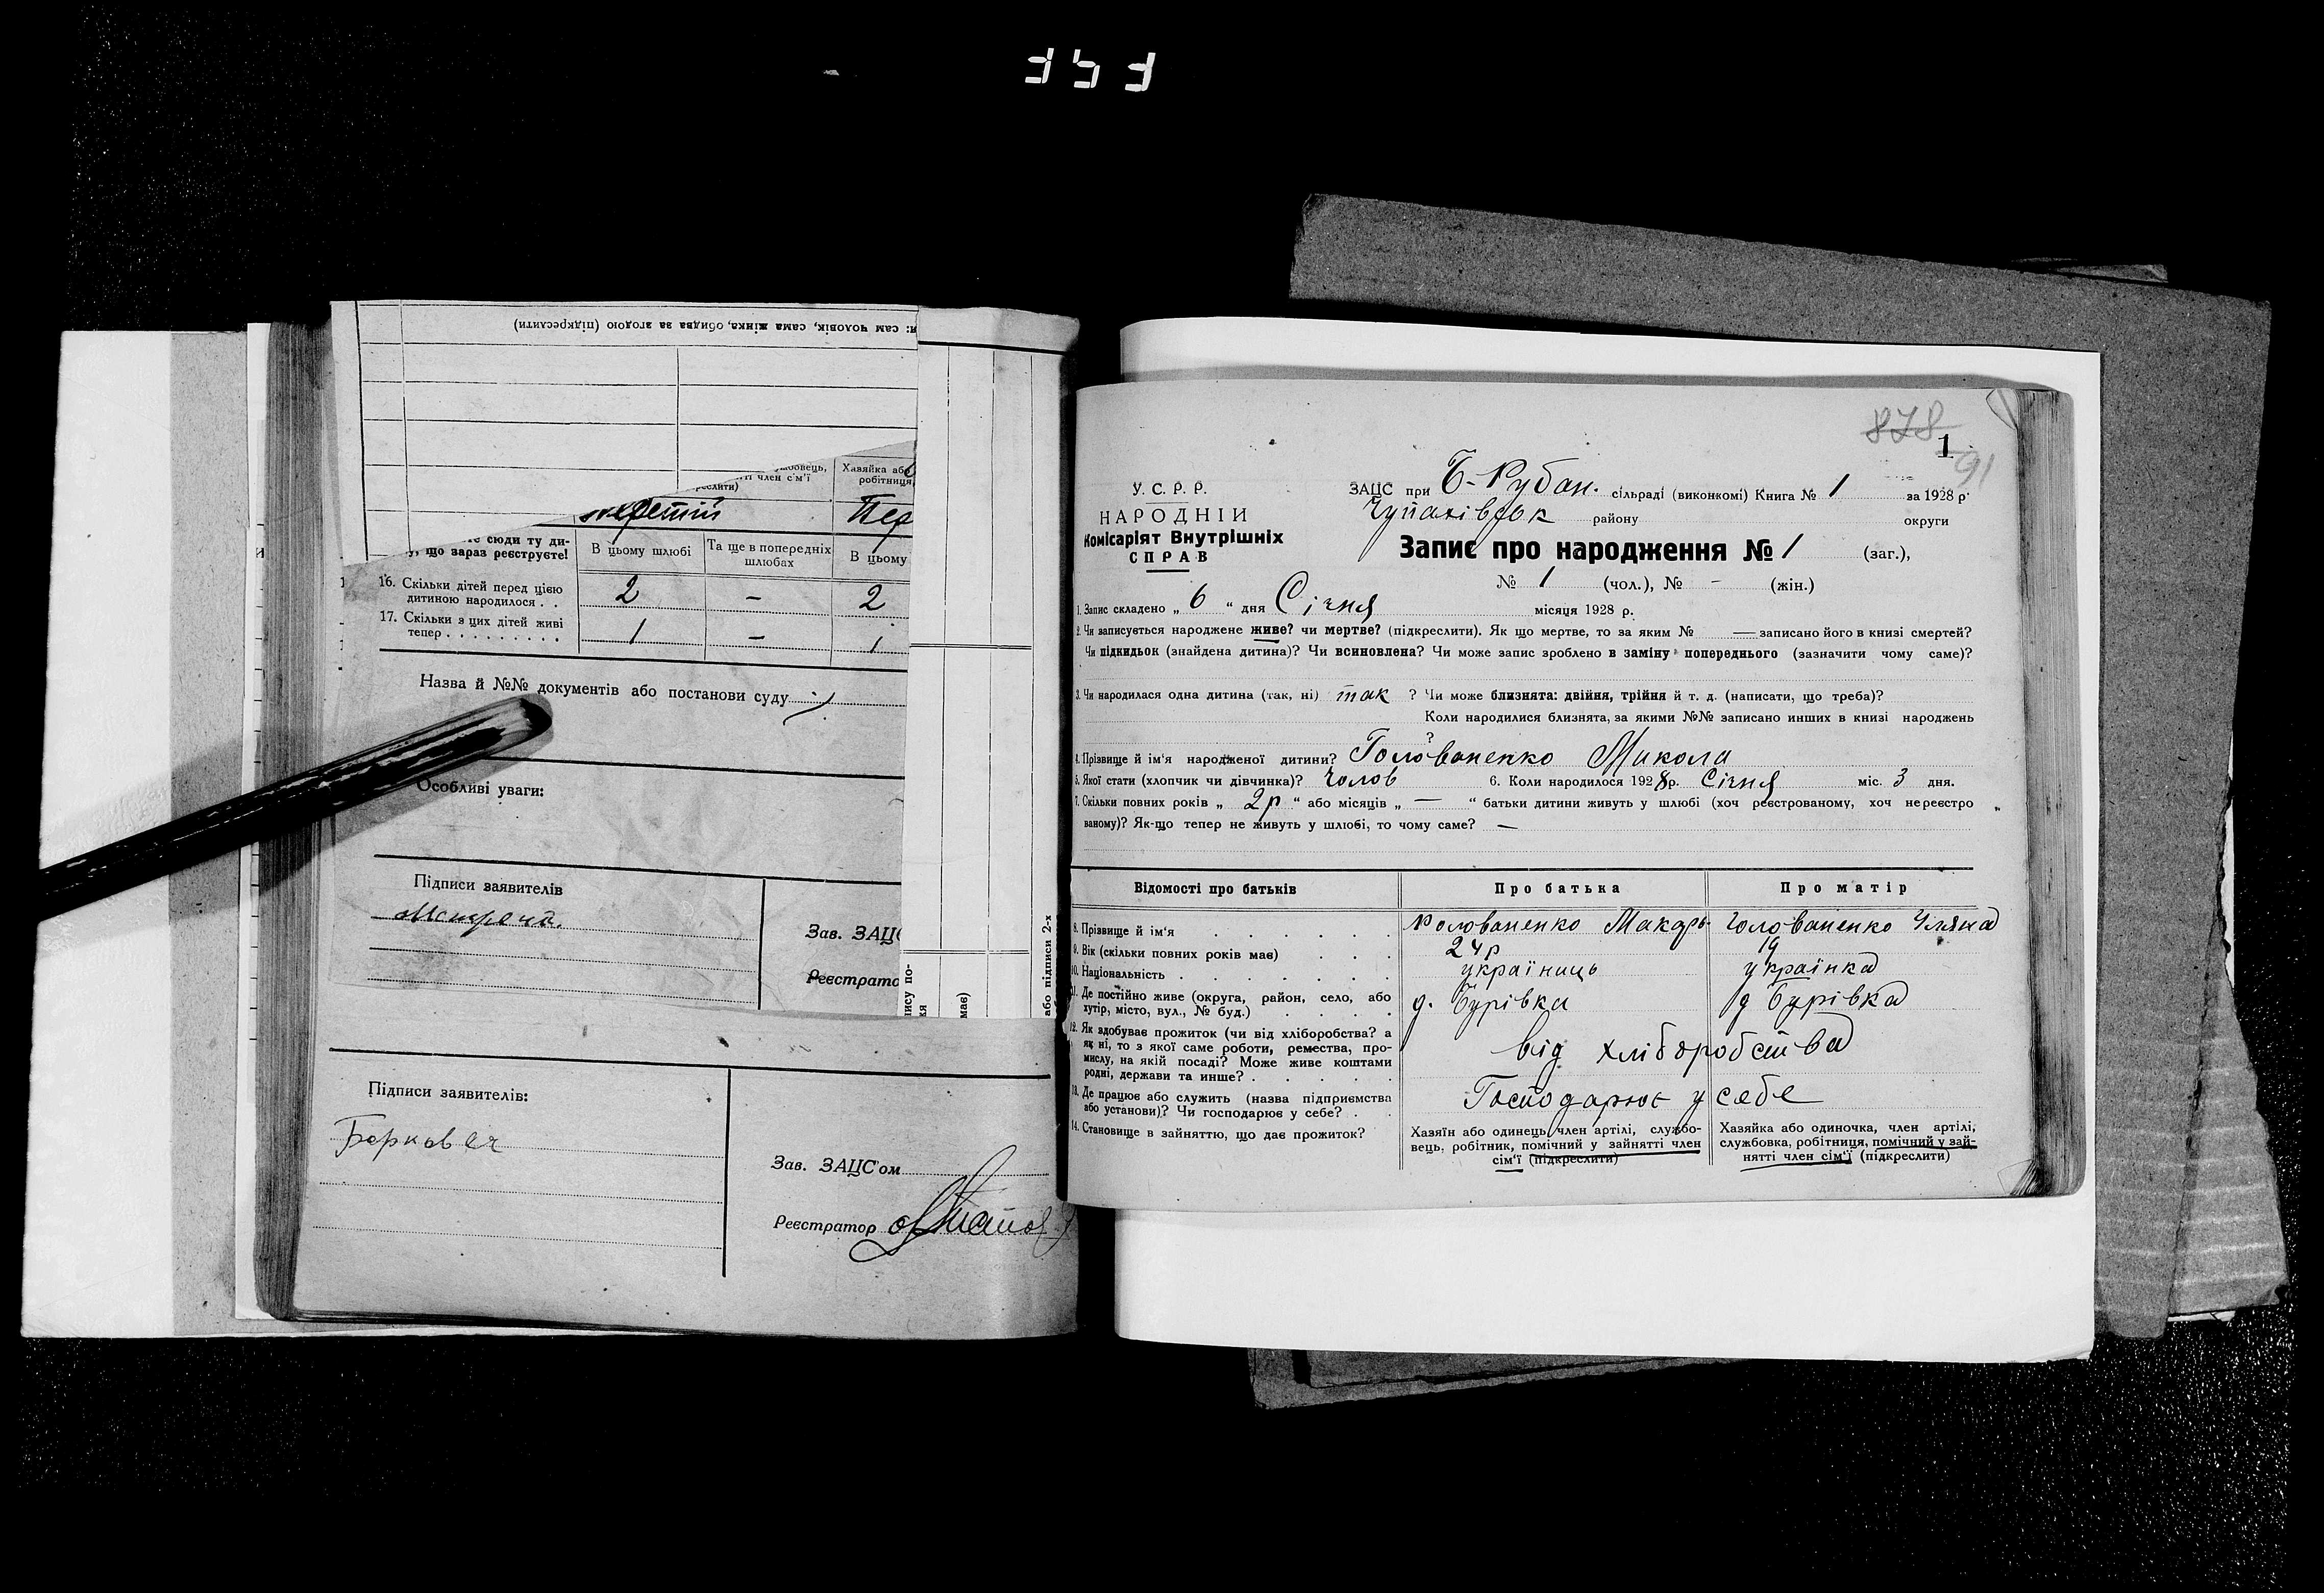 и: сам чоловік, сама жінка, обидва за згодою (підкреслити)
член сім'ї
Хазяйка або
робітниця,
третій
Пер
сюди ту ди-
що зараз реєструєте!
В цьому шлюбі
Та ще в попередніх
шлюбах
В цьому
16. Скільки дітей перед цією
дитиною народилося . .
2 — 2
17. Скільки з цих дітей живі
тепер . . . . . . . . .
1 — 1
Назва й №№ документів або постанови суду
Особливі уваги:
Підписи заявителів
Зав. ЗАЦС
Реєстрато
або підписи 2-х
пису по-
має)
Підписи заявителів:
Зав. ЗАЦС'ом
Реєстратор
878
1
91
У. С. Р. Р.
НАРОДНІЙ
Комісаріят Внутрішніх
СПРАВ
ЗАЦС при Б-Рубан. сільраді (виконкомі) Книга № 1 за 1928 р.
Чупахівськ району округи
Запис про народження № 1 (заг.),
№ 1 (чол.), № – (жін.)
1. Запис складено „ 6 “ дня Січня місяця 1928 р.
2. Чи записується народжене живе? чи мертве? (підкреслити). Як що мертве, то за яким № — записано його в книзі смертей?
Чи підкидьок (знайдена дитина)? Чи всиновлена? Чи може запис зроблено в заміну попереднього (зазначити чому саме)?
3. Чи народилася одна дитина (так, ні) так ? Чи може близнята: двійня, трійня й т. д. (написати, що треба)?
Коли народилися близнята, за якими №№ записано инших в книзі народжень
?
4. Прізвище й ім'я народженої дитини? Голованенко Микола
5. Якої стати (хлопчик чи дівчинка)? чолов 6. Коли народилося 1928 р. Січня міс. 3 дня.
7. Скільки повних років „ 2 р “ або місяців „ — “ батьки дитини живуть у шлюбі (хоч реєстрованому, хоч нереєстро
ваному)? Як-що тепер не живуть у шлюбі, то чому саме? —
Відомості про батьків
Про батька
Про матір
8. Прізвище й ім'я . . . . . . Голованенко Макарь Голованенко Уляна
9. Вік (скільки повних років має) . . . 24 р 19
10. Національність . . . . . . . україниць українка
11. Де постійно живе (округа, район, село, або
хутір, місто, вул., № буд.) . . . . д. Бурівка д Бурівка
12. Як здобуває прожиток (чи від хліборобства? а
як ні, то з якої саме роботи, ремества, про-
мислу, на якій посаді? Може живе коштами
родні, держави та инше? . . . . . .
від хліборобства
13. Де працює або служить (назва підприємства
або установи)? Чи господарює у себе? . .
Господарює у себе
14. Становище в зайняттю, що дає прожиток?
Хазяїн або одинець, член артілі, службо-
вець, робітник, помічний у зайнятті член
сім'ї (підкреслити)
Хазяйка або одиночка, член артілі,
службовка, робітниця, помічний у зай-
нятті член сім'ї (підкреслити)